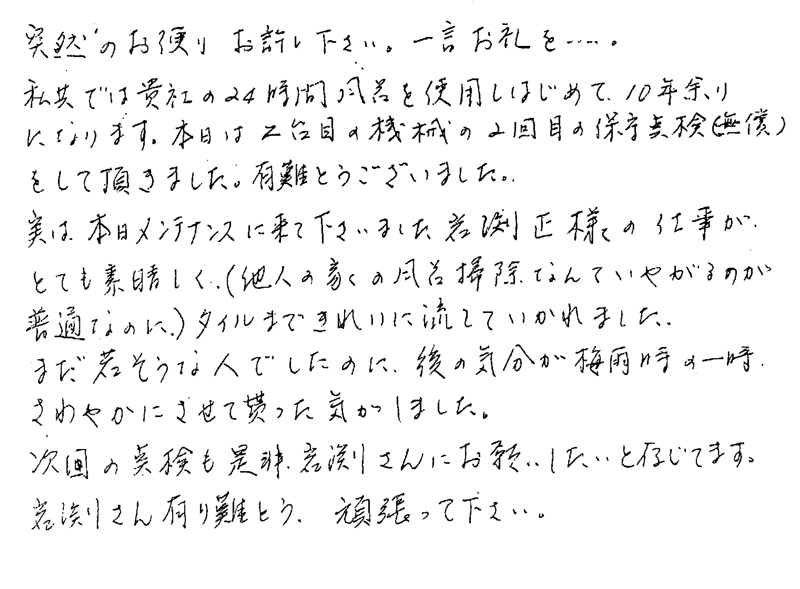 突然のお便り お許し下さい。一言お礼を……。
私共では貴社の24時間風呂を使用しはじめて、10年余り
になります。本日は二台目の機械の2回目の保守点検(無償)
をして頂きました。有難とうございました。
実は、本日メンテナンスに来て下さいました岩渕正様の仕事が、
とても素晴しく、(他人の家の風呂掃除なんていやがるのが
普通なのに、)タイルまできれいに流していかれました。
まだ若そうな人でしたのに、後の気分が梅雨時の一時、
さわやかにさせて貰った気がしました。
次回の点検も是非、岩渕さんにお願いしたいと存じてます。
岩渕さん有り難とう、頑張って下さい。